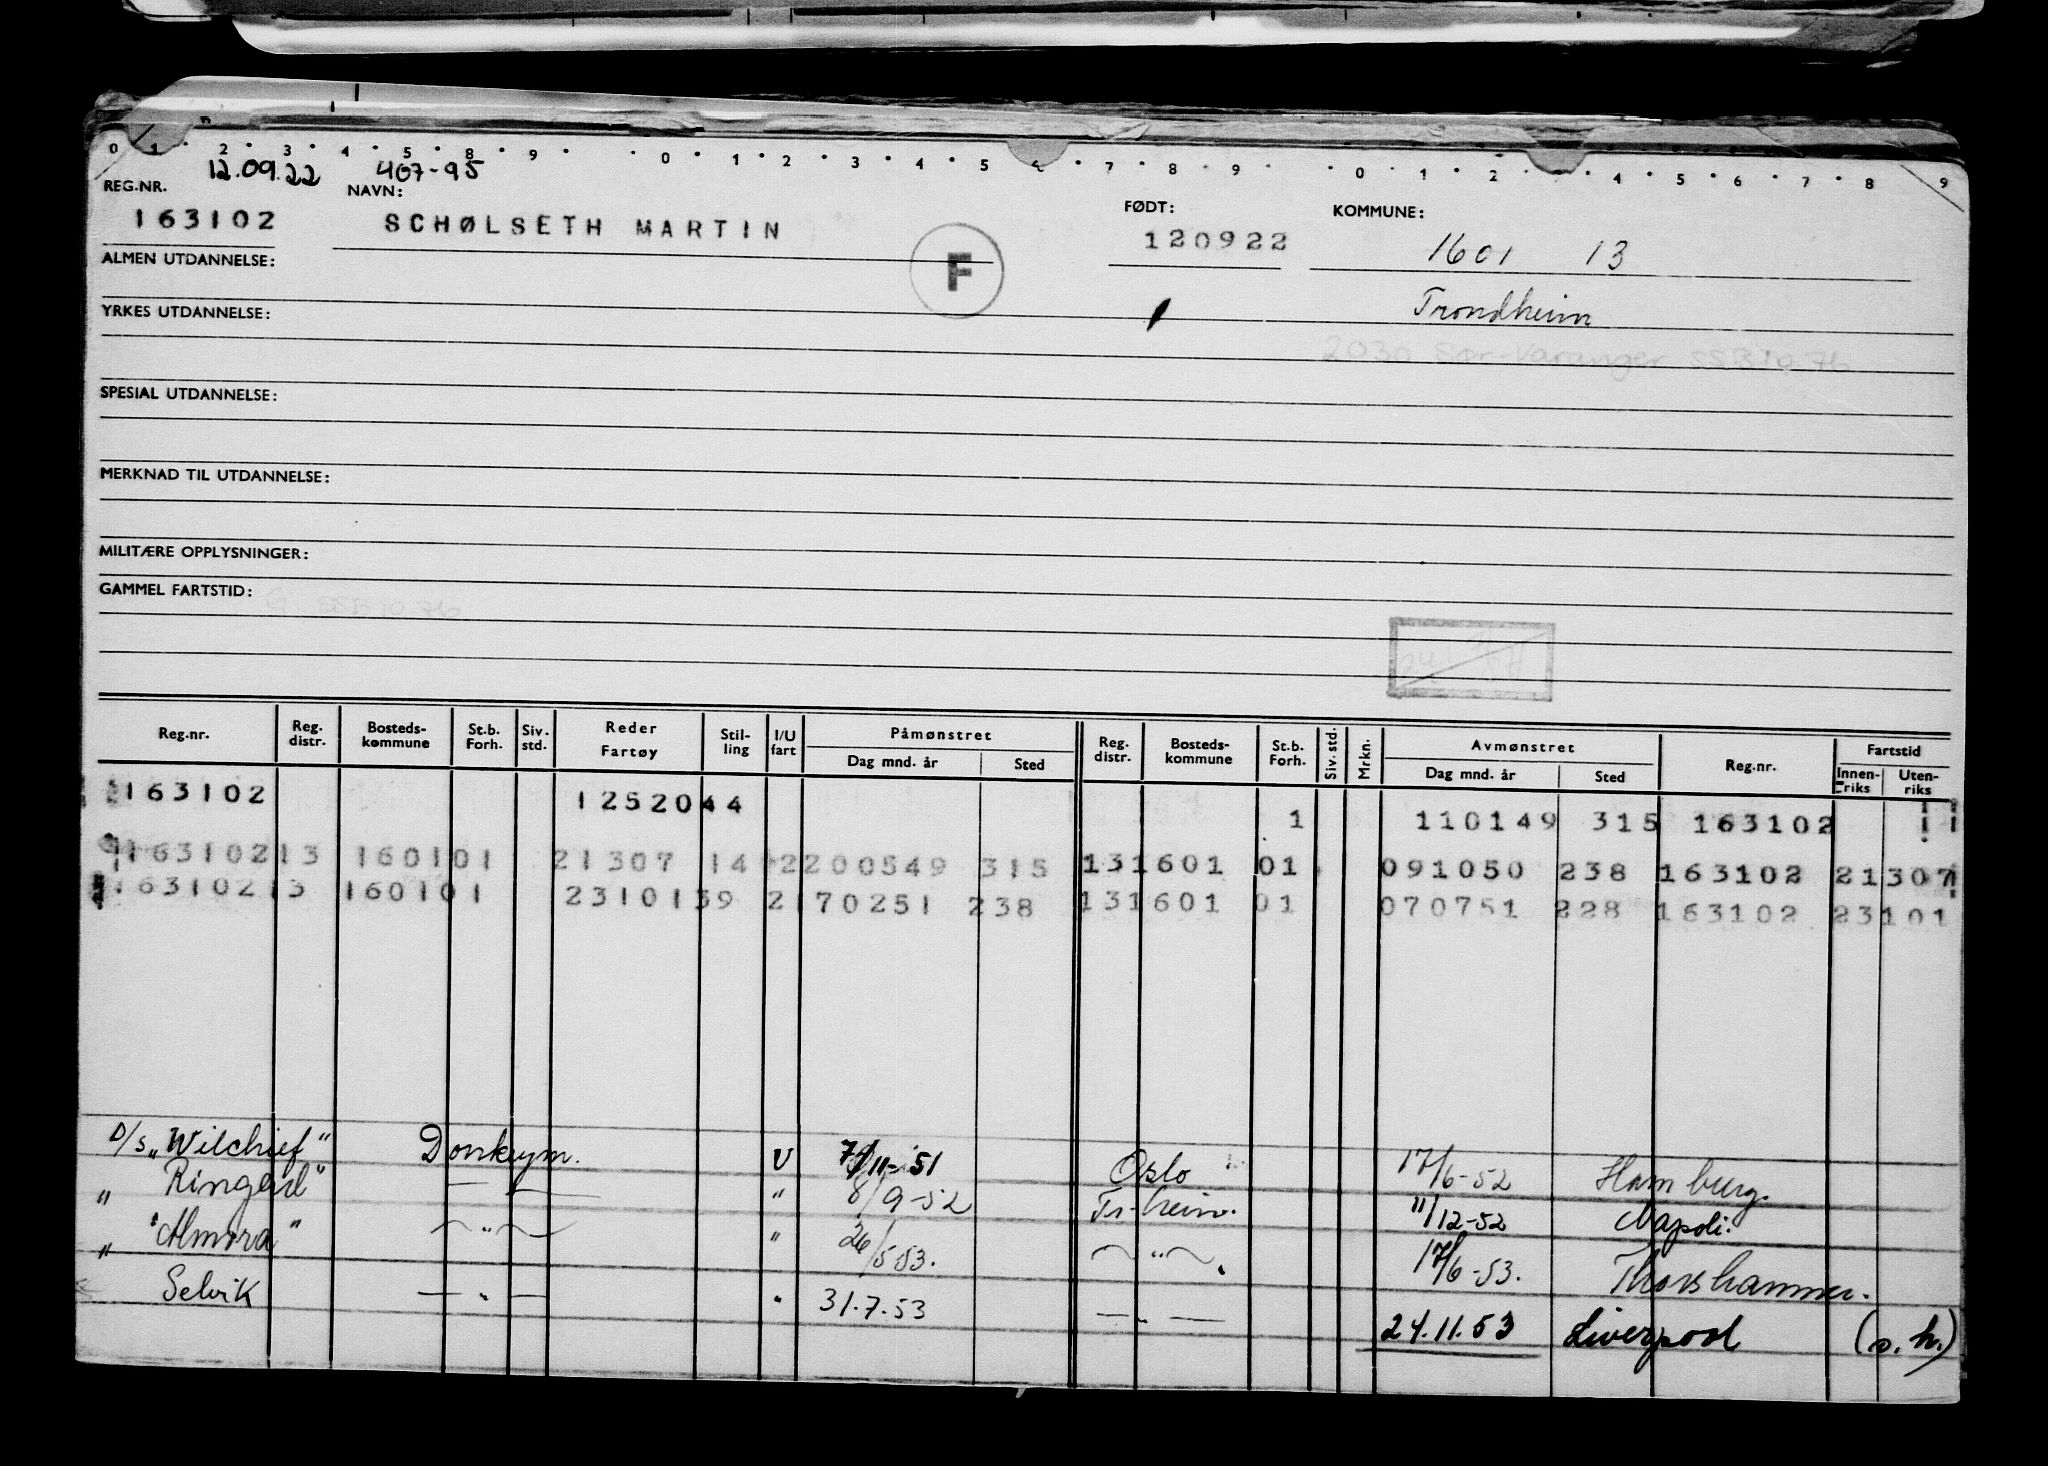 0 1 2 3 4 5 8 9 0 1 2 3 4 5 7 8 9 0 1 2 4 5 6 7 8 9
12.09.22 407-95
REG.NR. NAVN: FØDT: KOMMUNE:
163102 SCHØLSETH MARTIN 120922 1601 13
F
ALMEN UTDANNELSE:
Trondheim
YRKES UTDANNELSE:
2030 Sør-Varanger SSB 10 76
SPESIAL UTDANNELSE:
MERKNAD TIL UTDANNELSE:
MILITÆRE OPPLYSNINGER:
GAMMEL FARTSTID:
SSB 10 76
Reg.nr. Reg. distr. Bosteds-kommune St.b. Forh. Siv. std. Reder Fartøy Stil-ling I/U fart Påmønstret Dag mnd. år Sted Reg. distr. Bosteds-kommune St.b. Forh. Siv. std. Mrkn. Avmønstret Dag mnd. år Sted Reg.nr. Fartstid Innen-riks Uten-riks
163102 1252044 1 110149 315 163102
16310213 160101 21307 14 2200549 315 131601 01 091050 238 163102 21307
16310213 160101 2310139 2170251 238 131601 01 070751 228 163102 23101
D/S "Wilchief" Donkeym. U 7/11-51 Oslo 17/6-52 Hamburg.
" Ringerd" — — " 8/9-52 Tr-heim. 11/12-52 Napoli.
" "Almora" " " 26/5-53. " 17/6-53. Thorshammer.
Selvik — " — " 31.7.53 — " — 24.11.53 Liverpool (s.h.)